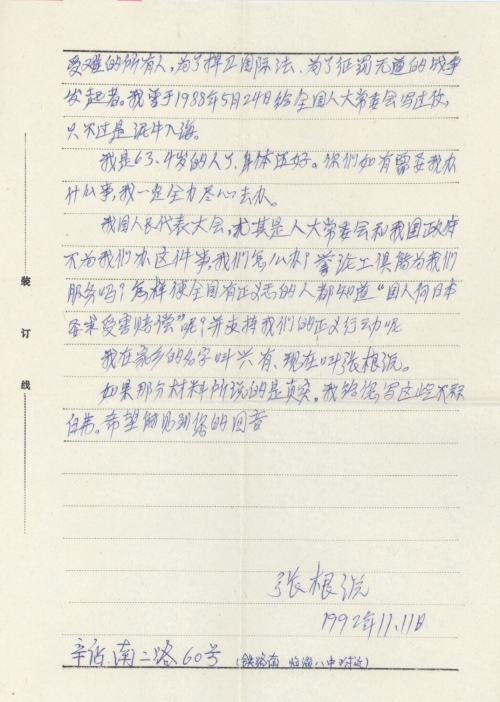 受难的所有人，为了捍卫国际法、为了征罚无道的战争
发起者。我曾于1988年5月24日给全国人大常委会写过信，
只不过是泥牛入海。
我是63、4岁的人了、身体还好。你们如有需要我办
什么事，我一定全力尽心去办。
我国人民代表大会，尤其是人大常委会和我国政府
不为我们办这件事，我们怎么办？舆论工具能为我们
服务吗？怎样使全国有正义志的人都知道“国人向日本
要求受害赔偿”呢？并支持我们的正义行动呢
我在家乡的名字叫兴有、现在叫张根
如果那份材料所说的是真实。我给您写这些不算
白费。希望能见到您的回音
张根
1992年11.11日
辛店.南二路60号（铁路南 临淄八中附近）
装
订
线